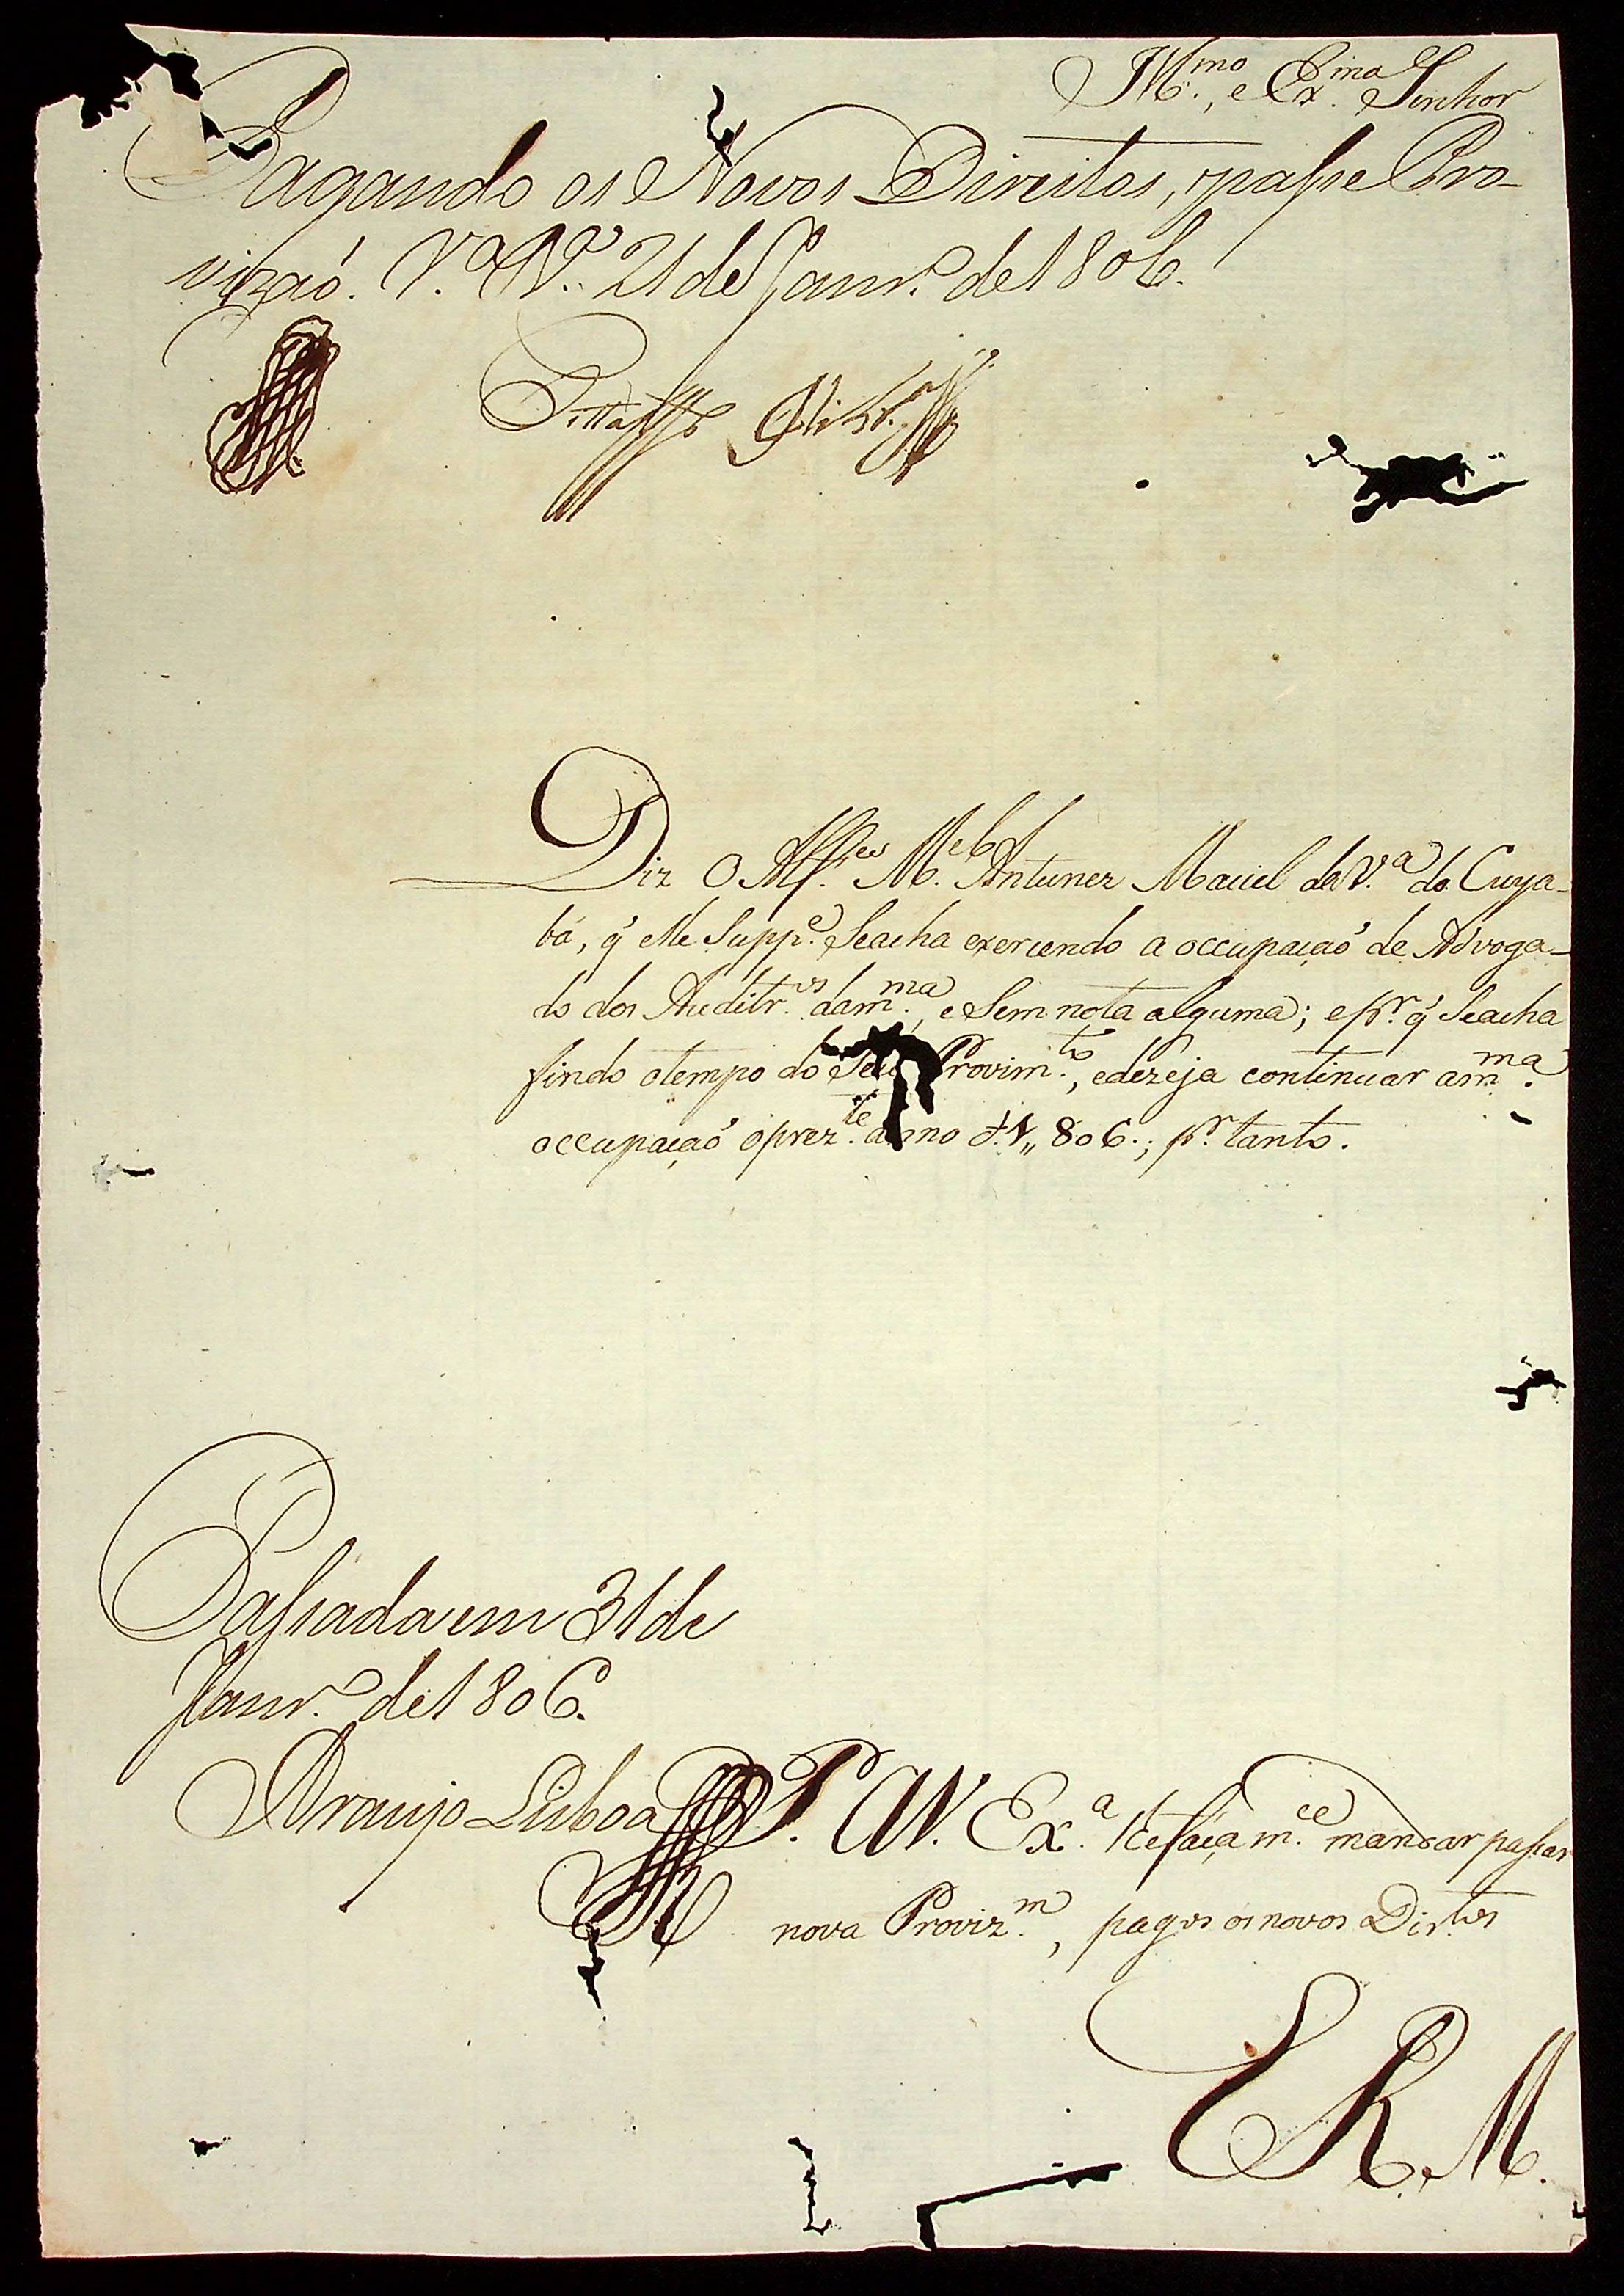 Ill.mo, e Ex.mo Senhor
Pagando os Novos Direitos, passe Pro-
vizaó. V.a B.a 21 de Janr.o de 1806.
Diz O Alf.es M.el Antunez Maciel da V.a do Cuya-
bá, q̃ elle Supp.e Seacha exercendo a occupaçaó de Advoga-
do dos Auditr.os dam.ma, e Sem nota alguma; e pr. q̃ Seacha
findo otempo do Seu Provim.to, edezeja continuar am.ma
occupaçaó oprez.te anno d.1,,806.; pr. tanto.
Passada em 31 de
Janr.o de 1806.
Araujo Lisboa
P. AV. Ex.a lhe faça m.ce mandar passar
nova Proviz.m, pagos os novos Dir.tos
E R. M.